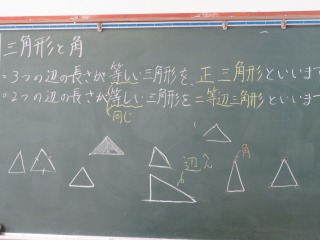 三角形と角
・3つの辺の長さが等しい三角形を、正三角形といいます
・2つの辺の長さが等しい三角形を二等辺三角形といいま
同じ
辺
角